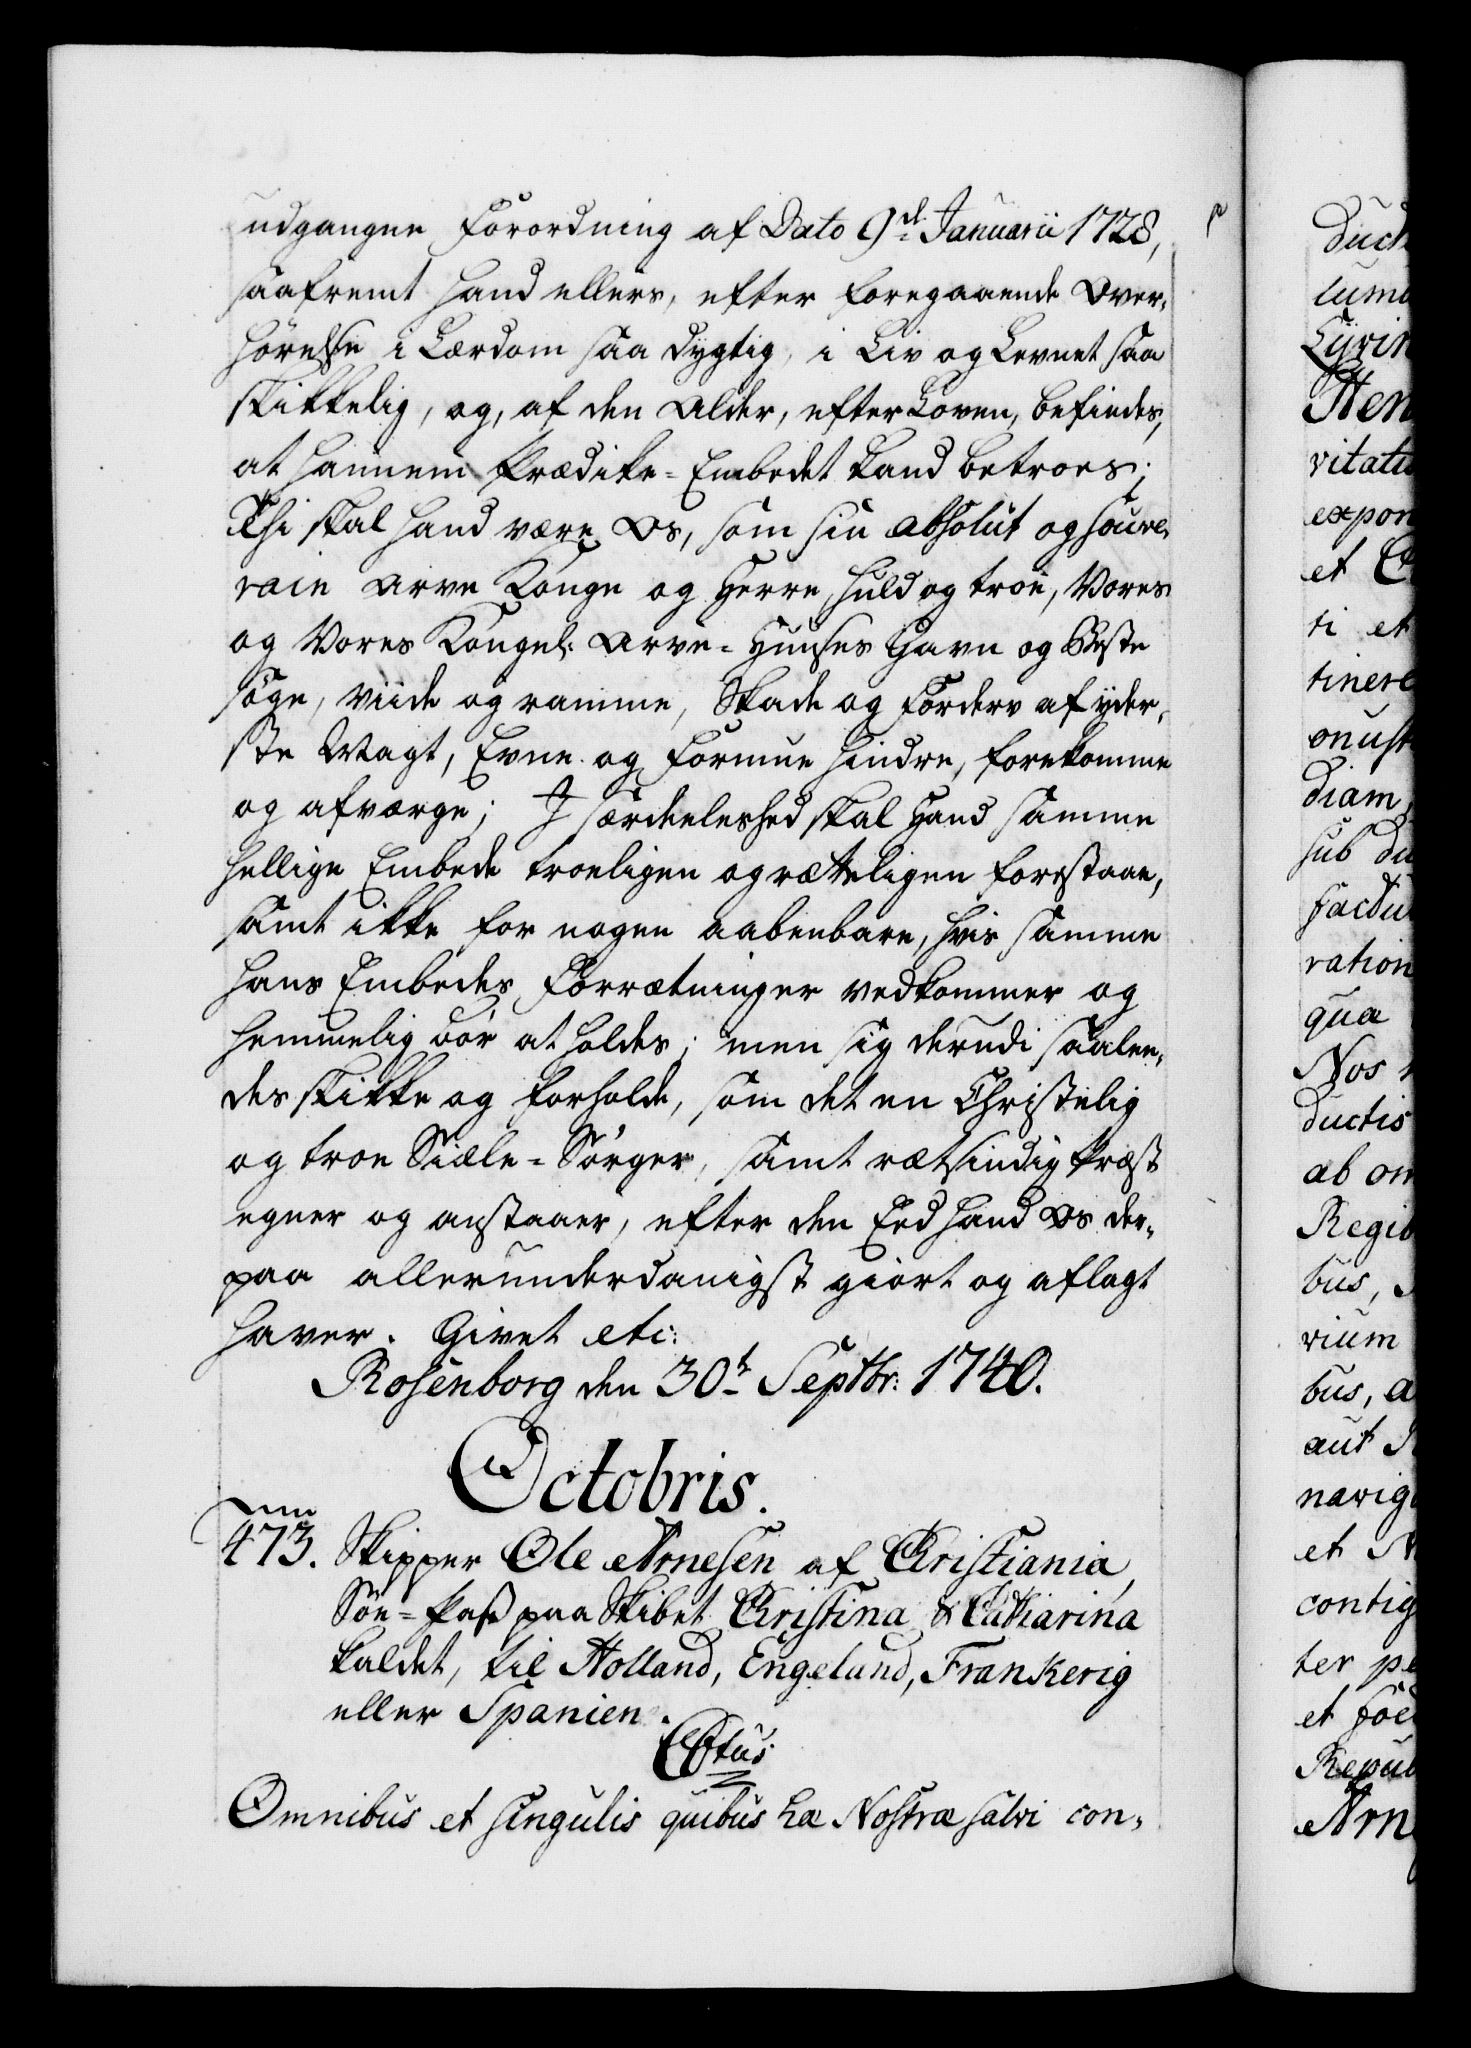 udgangne Forordning af Dato 9.de Januarii 1728,
saafremt hand ellers, efter foregaaende Over-
hørelse i Lærdom saa dygtig, i Liv og Levnet saa
skikkelig, og, af den Alder, efter Loven, befindes,
at hannem Prædike-Embedet kand betroes;
Thi skal hand være Os, som sin absolut og souve-
rain Arve Konge og Herre, huld og troe, Vores
og Vores Kongel: Arve-Huuses Gavn og Beste
søge, viide og ramme, Skade og Forderv af yder-
ste Magt, Evne og Formue hindre, forekomme
og afværge; I særdeeleshed skal Hand samme
hellige Embede troeligen og rætteligen forestaae,
samt ikke for nogen aabenbare, hvis samme
hans Embedes Forrætninger vedkommer og
hemmelig bør at holdes; men sig derudi saalee-
des skikke og forholde, som det en Christelig
og troe Siæle-Sørger, samt rætsindig Præst
egner og anstaaer, efter den Eed hand Os der-
paa allerunderdanigst giort og aflagt
haver. Givet etc:
Rosenborg den 30.te Septbr: 1740.
Octobris.
473. Skipper Ole Arnesen af Christiania,
Søe-Pass paa Skibet Christina & Catharina
kaldet, til Holland, Engeland, Frankerig
eller Spanien.
Omnibus et singulis quibus hæ Nostræ salvi con-
duct
Cÿrin
Hen
vitati
expon
et C
ti et
tinere
onust
diam,
sub du
factu
ration
qua
Nos
ductis
ab om
Regib
bus,
rium
bus, a
aut
navig
et
contig
ter pe
et foe
Repub
Arn